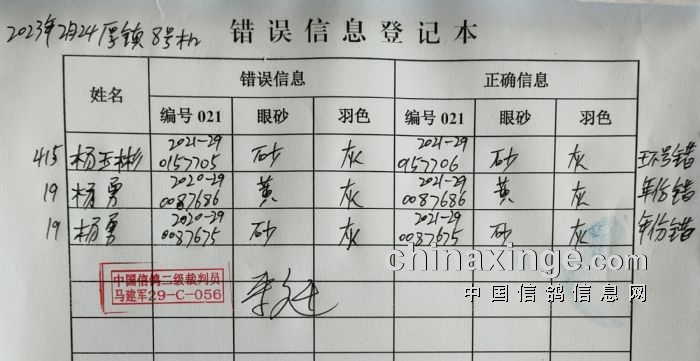 2023年2月24厚镇8号机 错误信息登记本
姓名 错误信息 正确信息
编号021 眼砂 羽色 编号021 眼砂 羽色
415 杨玉彬 2021-29 0157705 砂 灰 2021-29 0157706 砂 灰 环号错
19 杨勇 2020-29 0087686 黄 灰 2021-29 0087686 黄 灰 年份错
19 杨勇 2020-29 0087675 砂 灰 2021-29 0087675 砂 灰 年份错
中国信鸽二级裁判员
马建军29-C-056
chinaxinge.com
中国信鸽信息网